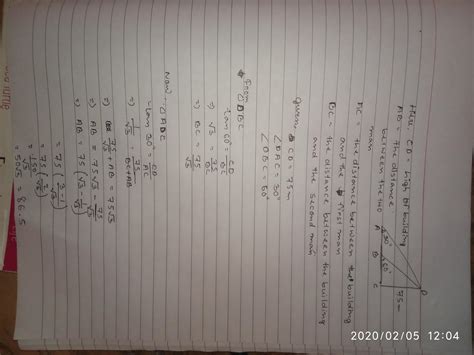 Here CD = high of building
AB = the distance
between the two
man
AC = the distance between the building
and the first man
BC = the distance between the building
and the second man
D
75m
30° 60°
A B C
Given, CD = 75m
∠DAC = 30°
∠DBC = 60°
From △DBC
tan 60° = CD/BC
⇒ √3 = 75/BC
⇒ BC = 75/√3
Now △ADC
tan 30° = CD/AC
⇒ 1/√3 = 75/BC+AB
⇒ 75/√3 + AB = 75√3
⇒ AB = 75√3 - 75/√3
⇒ AB = 75(√3 - 1/√3)
= 75(3-1/√3)
= 75(2/√3)
= 150/√3
= 50√3 = 86.5
2020/02/05 12:04